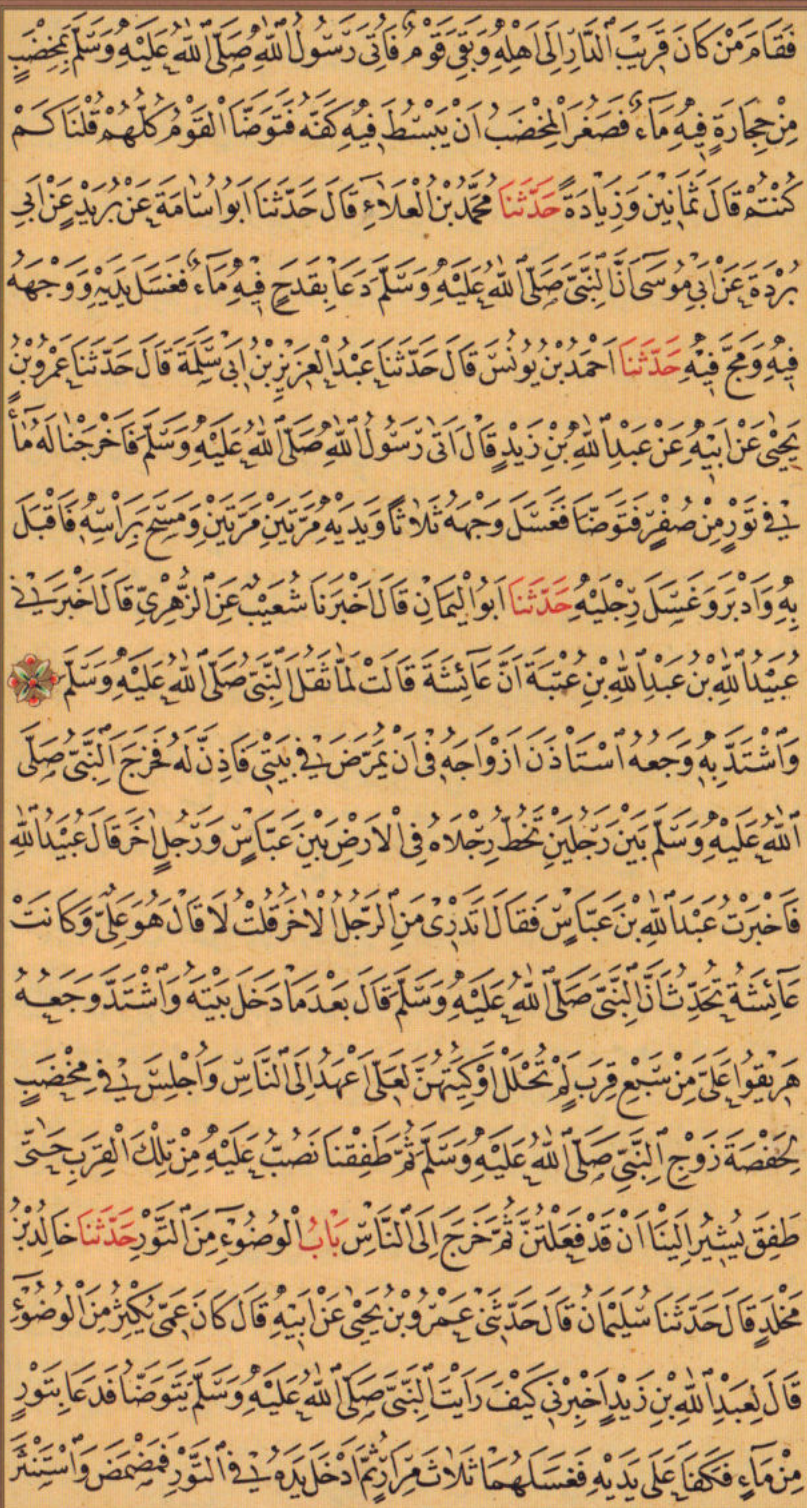 فَقَامَ مَنْ كَانَ قَرِيبَ ٱلدَّارِ اِلٰى اَهْلِهِ وَبَقِىَ قَوْمٌ فَاُتِىَ رَسُولُ ٱللّٰهِ صَلَّى ٱللّٰهُ عَلَيْهِ وَسَلَّمَ بِمِخْضَبٍ
مِنْ حِجَارَةٍ فِيهِ مَآءٌ فَصَغُرَ الْمِخْضَبُ اَنْ يَبْسُطَ فِيهِ كَفَّهُ فَتَوَضَّاَ الْقَوْمُ كُلُّهُمْ قُلْنَا كَمْ
كُنْتُمْ قَالَ ثَمَانِينَ وَزِيَادَةً حَدَّثَنَا مُحَمَّدُ بْنُ الْعَلَاءِ قَالَ حَدَّثَنَا اَبُو اُسَامَةَ عَنْ بُرَيْدٍ عَنْ اَبِى
بُرْدَةَ عَنْ اَبِى مُوسٰى اَنَّ النَّبِىَّ صَلَّى ٱللّٰهُ عَلَيْهِ وَسَلَّمَ دَعَا بِقَدَحٍ فِيهِ مَآءٌ فَغَسَلَ يَدَيْهِ وَوَجْهَهُ
فِيهِ وَمَجَّ فِيهِ حَدَّثَنَا اَحْمَدُ بْنُ يُونُسَ قَالَ حَدَّثَنَا عَبْدُ الْعَزِيزِ بْنُ اَبِى سَلَمَةَ قَالَ حَدَّثَنَا عَمْرُو بْنُ
يَحْيٰى عَنْ اَبِيهِ عَنْ عَبْدِ ٱللّٰهِ بْنِ زَيْدٍ قَالَ اَتٰى رَسُولُ ٱللّٰهِ صَلَّى ٱللّٰهُ عَلَيْهِ وَسَلَّمَ فَاَخْرَجْنَا لَهُ مَآءً
فِى تَوْرٍ مِنْ صُفْرٍ فَتَوَضَّاَ فَغَسَلَ وَجْهَهُ ثَلَاثًا وَيَدَيْهِ مَرَّتَيْنِ مَرَّتَيْنِ وَمَسَحَ بِرَاْسِهِ فَاَقْبَلَ
بِهِ وَاَدْبَرَ وَغَسَلَ رِجْلَيْهِ حَدَّثَنَا اَبُو الْيَمَانِ قَالَ اَخْبَرَنَا شُعَيْبٌ عَنِ ٱلزُّهْرِىِّ قَالَ اَخْبَرَنِى
عُبَيْدُ ٱللّٰهِ بْنُ عَبْدِ ٱللّٰهِ بْنِ عُتْبَةَ اَنَّ عَائِشَةَ قَالَتْ لَمَّا ثَقُلَ النَّبِىُّ صَلَّى ٱللّٰهُ عَلَيْهِ وَسَلَّمَ
وَاشْتَدَّ بِهِ وَجَعُهُ ٱسْتَاْذَنَ اَزْوَاجَهُ فِى اَنْ يُمَرَّضَ فِى بَيْتِى فَاَذِنَّ لَهُ فَخَرَجَ ٱلنَّبِىُّ صَلَّى
ٱللّٰهُ عَلَيْهِ وَسَلَّمَ بَيْنَ رَجُلَيْنِ تَخُطُّ رِجْلَاهُ فِى الْاَرْضِ بَيْنَ عَبَّاسٍ وَرَجُلٍ اٰخَرَ قَالَ عُبَيْدُ ٱللّٰهِ
فَاَخْبَرْتُ عَبْدَ ٱللّٰهِ بْنَ عَبَّاسٍ فَقَالَ اَتَدْرِى مَنِ ٱلرَّجُلُ الْاٰخَرُ قُلْتُ لَا قَالَ هُوَ عَلِىٌّ وَكَانَتْ
عَآئِشَةُ تُحَدِّثُ اَنَّ النَّبِىَّ صَلَّى ٱللّٰهُ عَلَيْهِ وَسَلَّمَ قَالَ بَعْدَ مَا دَخَلَ بَيْتَهُ وَاشْتَدَّ وَجَعُهُ
هَرِيقُوا عَلَىَّ مِنْ سَبْعِ قِرَبٍ لَمْ تُحْلَلْ اَوْكِيَتُهُنَّ لَعَلِّى اَعْهَدُ اِلَى ٱلنَّاسِ وَاُجْلِسَ فِى مِخْضَبٍ
لِحَفْصَةَ زَوْجِ ٱلنَّبِىِّ صَلَّى ٱللّٰهُ عَلَيْهِ وَسَلَّمَ ثُمَّ طَفِقْنَا نَصُبُّ عَلَيْهِ مِنْ تِلْكَ الْقِرَبِ حَتّٰى
طَفِقَ يُشِيرُ اِلَيْنَا اَنْ قَدْ فَعَلْتُنَّ ثُمَّ خَرَجَ اِلَى ٱلنَّاسِ بَابُ الْوُضُوءِ مِنَ التَّوْرِ حَدَّثَنَا خَالِدُ بْنُ
مَخْلَدٍ قَالَ حَدَّثَنَا سُلَيْمَانُ قَالَ حَدَّثَنِى عَمْرُو بْنُ يَحْيٰى عَنْ اَبِيهِ قَالَ كَانَ عَمِّى يُكْثِرُ مِنَ الْوُضُوءِ
قَالَ لِعَبْدِ ٱللّٰهِ بْنِ زَيْدٍ اَخْبِرْنِى كَيْفَ رَاَيْتَ النَّبِىَّ صَلَّى ٱللّٰهُ عَلَيْهِ وَسَلَّمَ يَتَوَضَّاُ فَدَعَا بِتَوْرٍ
مِنْ مَآءٍ فَكَفَاَ عَلٰى يَدَيْهِ فَغَسَلَهُمَا ثَلَاثَ مِرَارٍ ثُمَّ اَدْخَلَ يَدَهُ فِى التَّوْرِ فَمَضْمَضَ وَاسْتَنْثَرَ